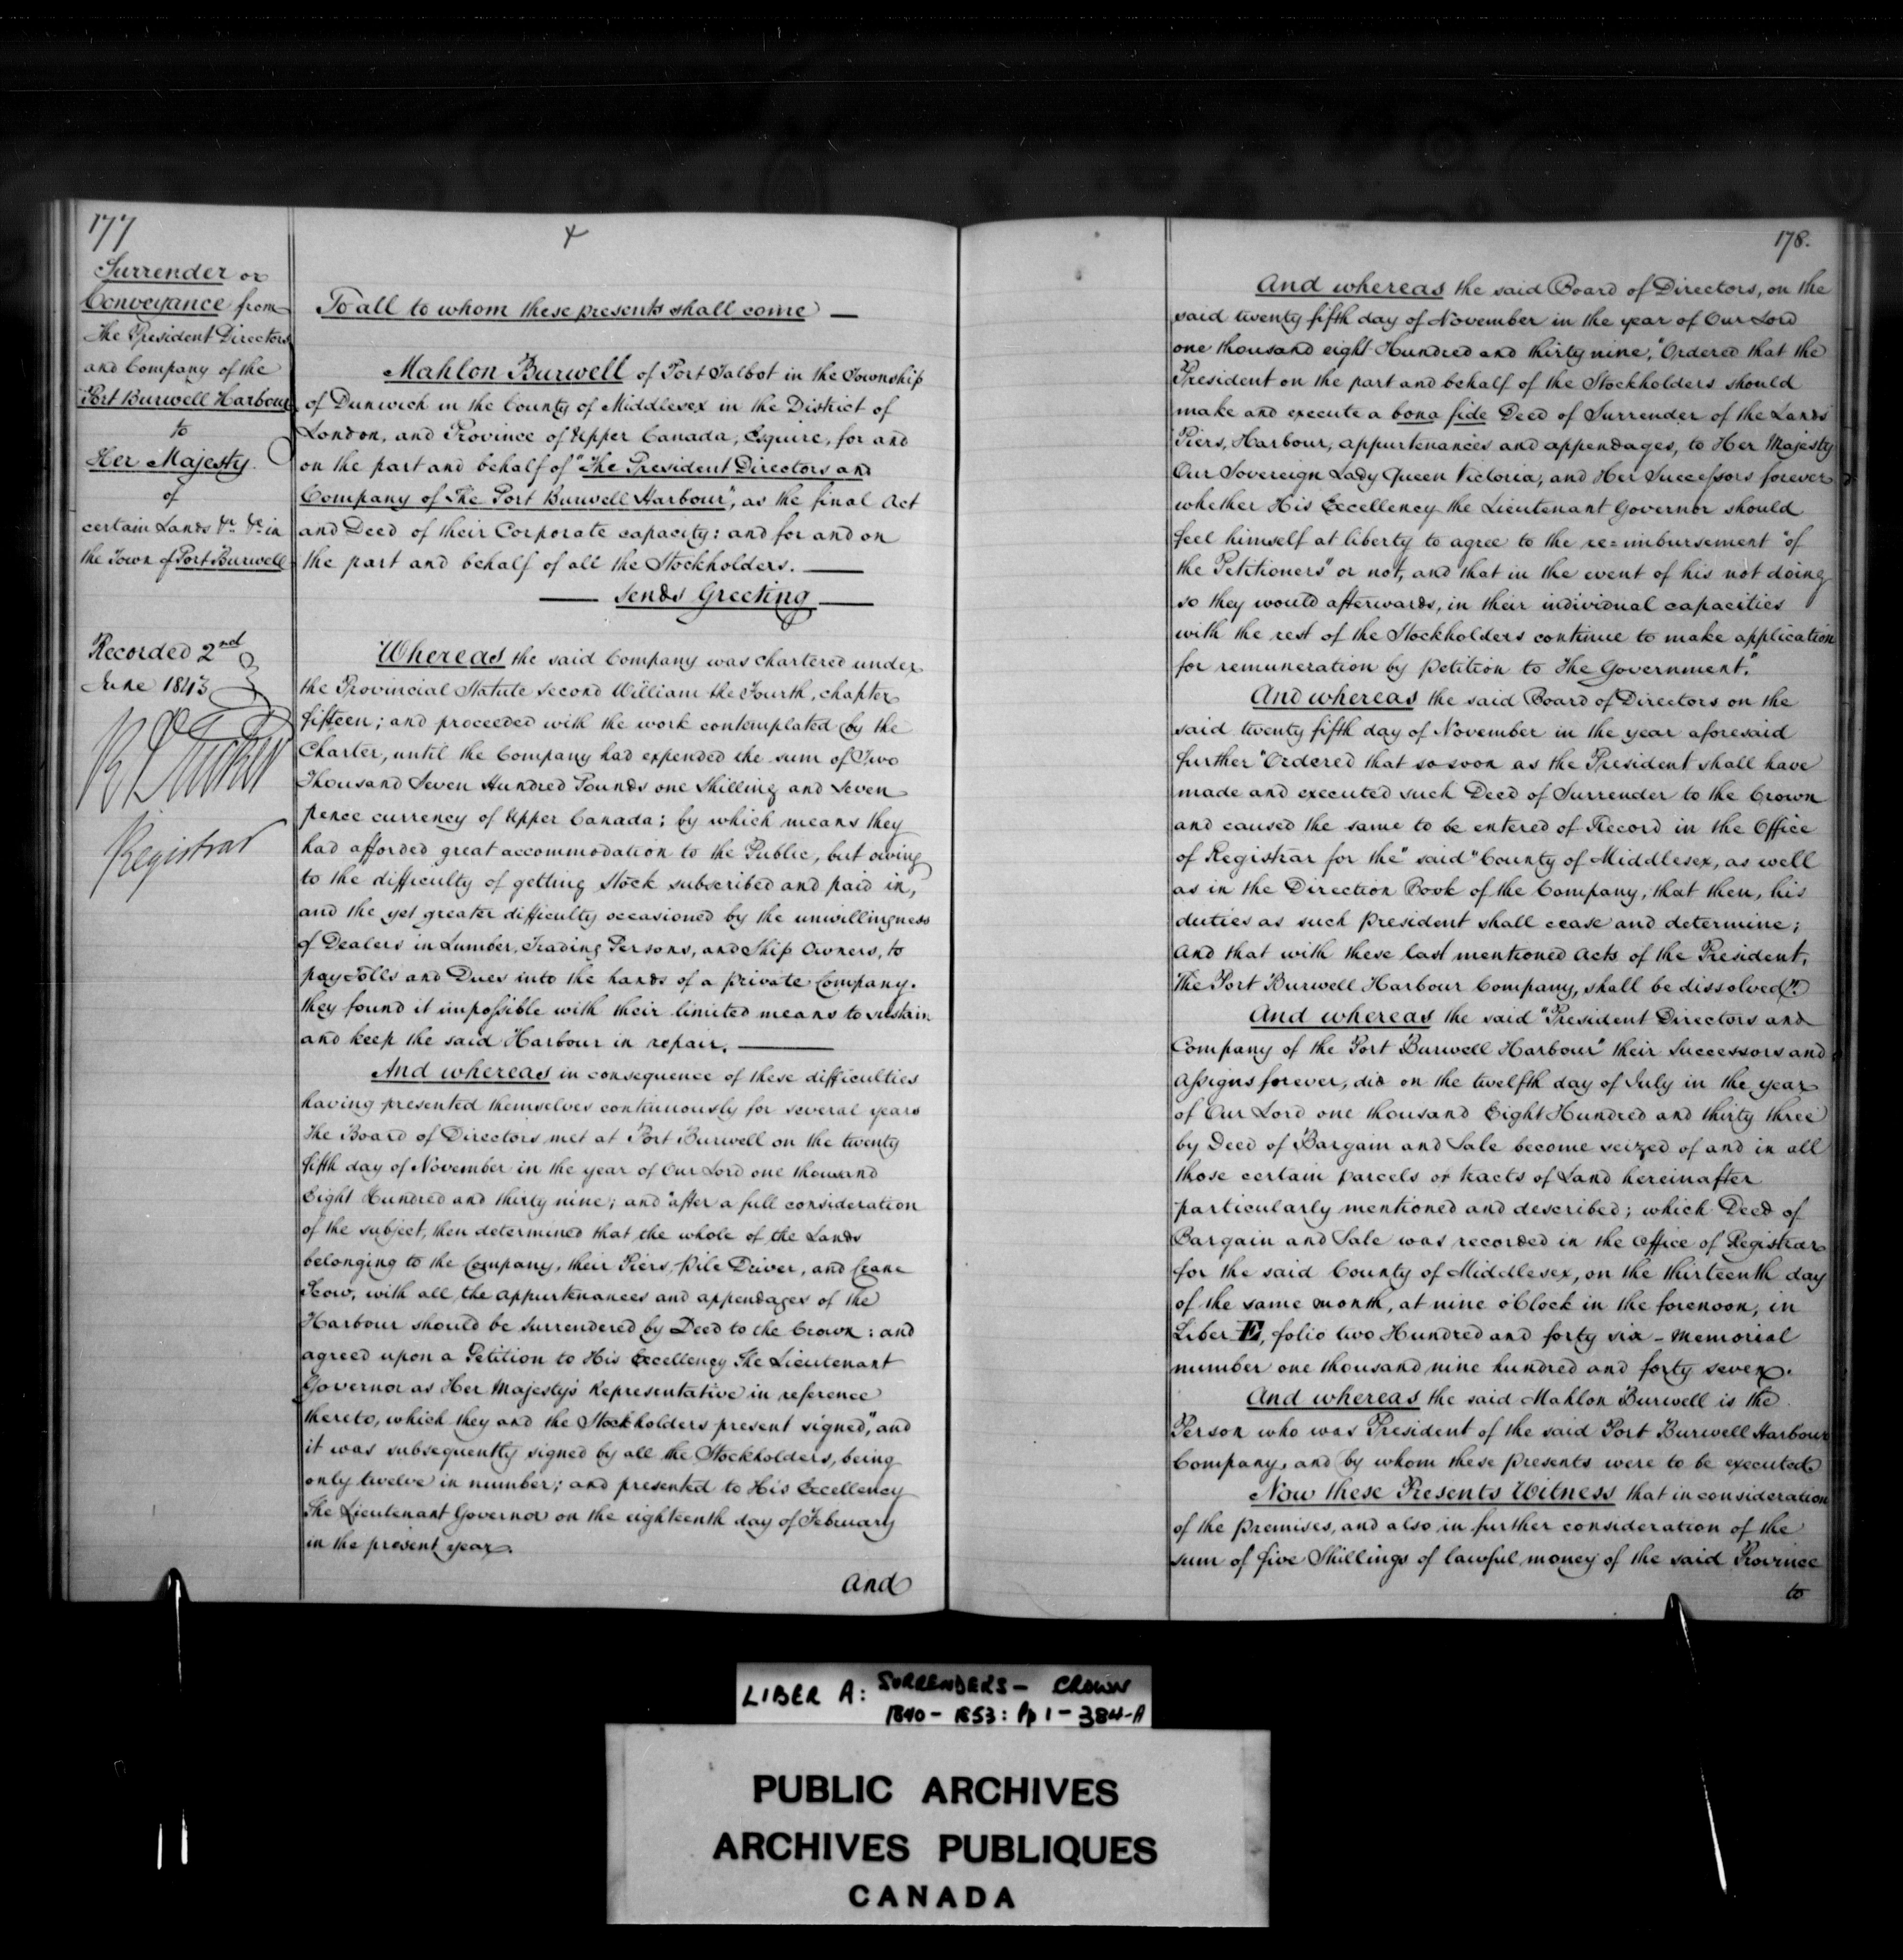 177
Surrender or
Conveyance from
The President Directors
and Company of the
Port Burwell Harbour
to
Her Majesty
of
certain Lands &c &c in
the Town of Port Burwell
Recorded 2nd
June 1843
Registrar
To all to whom these presents shall come —
Mahlon Burwell of Port Talbot in the Township
of Dunwich in the County of Middlesex in the District of
London, and Province of Upper Canada, Esquire, for and
on the part and behalf of "The President Directors and
Company of The Port Burwell Harbour", as the final Act
and Deed of their Corporate capacity: and for and on
the part and behalf of all the Stockholders. —
— Sends Greeting —
Whereas the said Company was chartered under
the Provincial Statute second William the Fourth, chapter
fifteen; and proceeded with the work contemplated by the
Charter, until the Company had expended the sum of Two
Thousand Seven Hundred Pounds one Shilling and Seven
pence currency of Upper Canada; by which means they
had afforded great accommodation to the Public, but owing
to the difficulty of getting stock subscribed and paid in,
and the yet greater difficulty occasioned by the unwillingness
of Dealers in Lumber, Trading Persons, and Ship Owners, to
pay Tolls and Dues into the hands of a private Company.
they found it impossible with their limited means to sustain
and keep the said Harbour in repair. —
And whereas in consequence of these difficulties
having presented themselves continuously for several years
The Board of Directors met at Port Burwell on the twenty
fifth day of November in the year of Our Lord one thousand
Eight Hundred and thirty nine; and "after a full consideration
of the subject, then determined that the whole of the Lands
belonging to the Company, their Piers, Pile Driver, and Crane
Scow, with all the appurtenances and appendages of the
Harbour should be surrendered by Deed to the Crown: and
agreed upon a Petition to His Excellency The Lieutenant
Governor as Her Majesty's Representative in reference
thereto, which they and the Stockholders present signed", and
it was subsequently signed by all the Stockholders, being
only twelve in number; and presented to His Excellency
The Lieutenant Governor on the eighteenth day of February
in the present year.
And
178.
And whereas the said Board of Directors, on the
said twenty fifth day of November in the year of Our Lord
one thousand eight Hundred and thirty nine, "Ordered that the
President on the part and behalf of the Stockholders should
make and execute a bona fide Deed of Surrender of the Lands
Piers, Harbour, appurtenances and appendages, to Her Majesty
Our Sovereign Lady Queen Victoria, and Her Successors forever
whether His Excellency the Lieutenant Governor should
feel himself at liberty to agree to the re=imbursement "of
the Petitioners" or not, and that in the event of his not doing
so they would afterwards, in their individual capacities
with the rest of the Stockholders continue to make application
for remuneration by petition to The Government."
And whereas the said Board of Directors on the
said twenty fifth day of November in the year aforesaid
further "Ordered that so soon as the President shall have
made and executed such Deed of Surrender to the Crown
and caused the same to be entered of Record in the Office
of Registrar for the" said "County of Middlesex, as well
as in the Direction Book of the Company, that then, his
duties as such president shall cease and determine;
And that with these last mentioned Acts of the President,
The Port Burwell Harbour Company, shall be dissolved".
And whereas the said "President Directors and
Company of the Port Burwell Harbour" their Successors and
Assigns forever, did on the twelfth day of July in the year
of Our Lord one thousand Eight Hundred and thirty three
by Deed of Bargain and Sale become seized of and in all
those certain parcels or tracts of Land hereinafter
particularly mentioned and described; which Deed of
Bargain and Sale was recorded in the Office of Registrar
for the said County of Middlesex, on the thirteenth day
of the same month, at nine o'Clock in the forenoon, in
Liber E, folio two Hundred and forty six – Memorial
number one thousand nine hundred and forty seven.
And whereas the said Mahlon Burwell is the
Person who was President of the said Port Burwell Harbour
Company, and by whom these presents were to be executed
Now these Presents Witness that in consideration
of the premises, and also in further consideration of the
sum of five Shillings of lawful money of the said Province
to
LIBER A: SURRENDERS – CROWN
1840 – 1853: Pp 1 – 384-A
PUBLIC ARCHIVES
ARCHIVES PUBLIQUES
CANADA